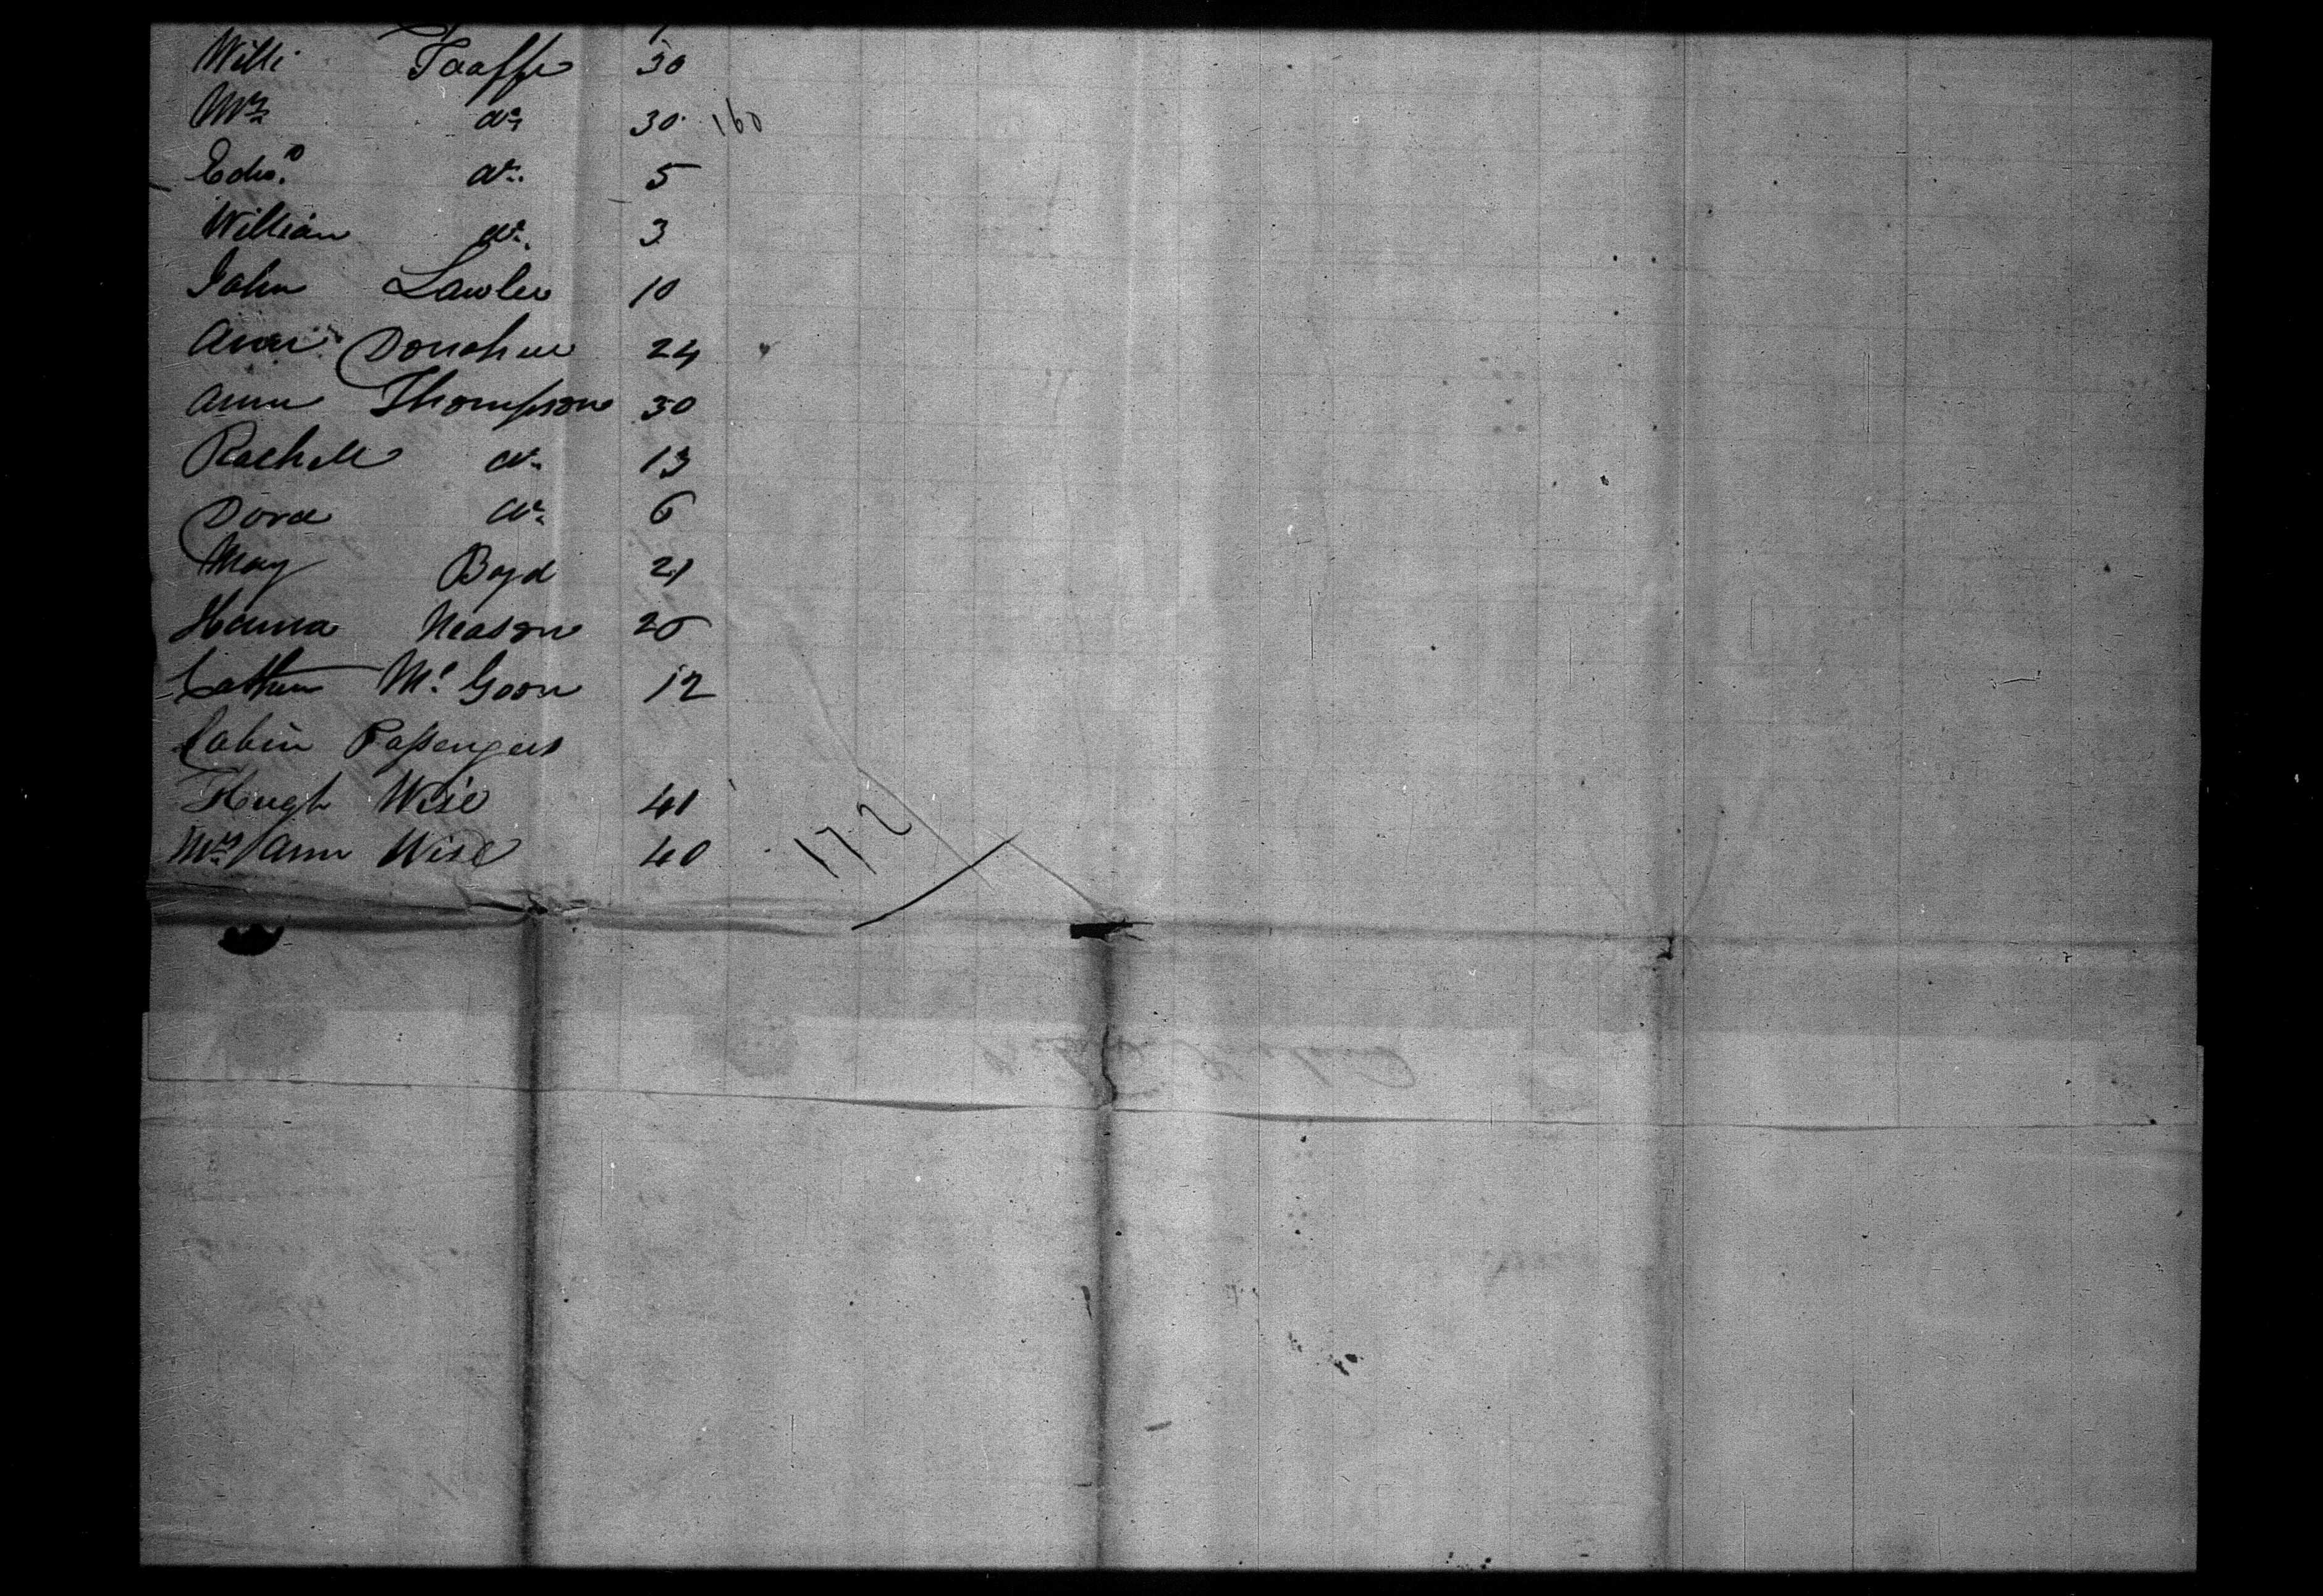 Willi Taaffe 30
Mrs Do 30 160
Edwd Do 5
William Do 3
John Lawler 10
Ann Donohue 24
Ann Thompson 30
Rachell Do 13
Dora Do 6
May Boyd 21
Hanna Neason 26
Cathern Mc Goon 12
Cabin Passengers
Hugh Wise 41
Mrs Ann Wise 40
172